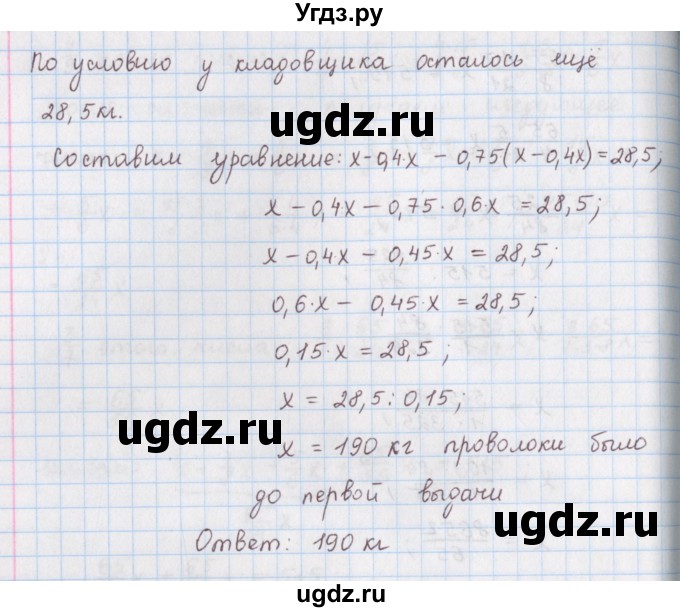 Угдз.ру
По условию у кладовщика осталось ещё
28,5 кг.
ugdz.ru
Составим уравнение: x-0,4·x - 0,75(x-0,4x)=28,5;
x - 0,4x - 0,75·0,6·x = 28,5;
x - 0,4·x - 0,45·x = 28,5;
0,6·x - 0,45·x = 28,5;
0,15·x = 28,5;
x = 28,5 : 0,15;
ugdz.ru
x = 190 кг проволоки было
до первой выдачи
ugdz.ru
Ответ: 190 кг
ugdz.ru